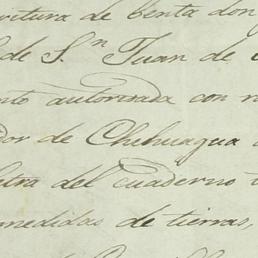 critura de benta don
de S.n Juan de
nto autorisada con
dor de Chihuagua
letra del cuaderno
medidas de tierras,